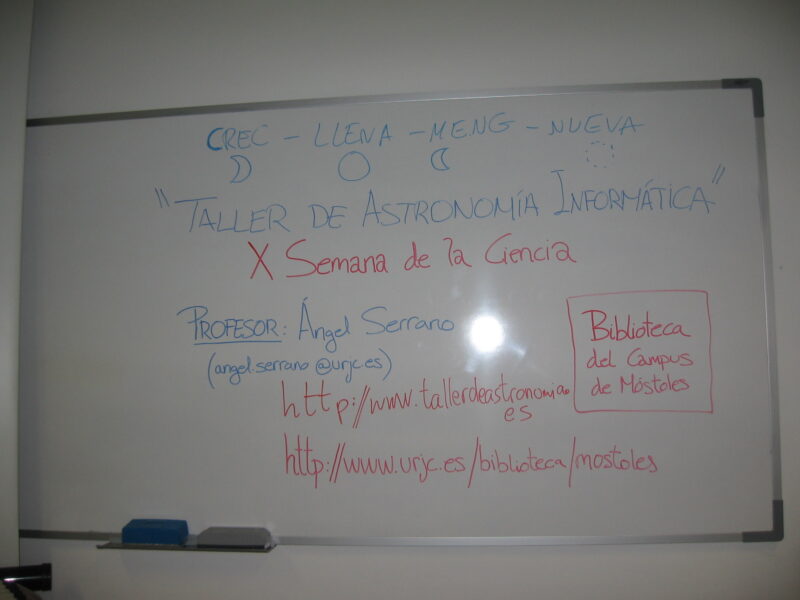 CREC - LLENA - MENG - NUEVA
"TALLER DE ASTRONOMÍA INFORMÁTICA"
X Semana de la Ciencia
PROFESOR: Ángel Serrano
(angel.serrano@urjc.es)
http://www.tallerdeastronomia.
es
Biblioteca
del Campus
de Móstoles
http://www.urjc.es/biblioteca/mostoles